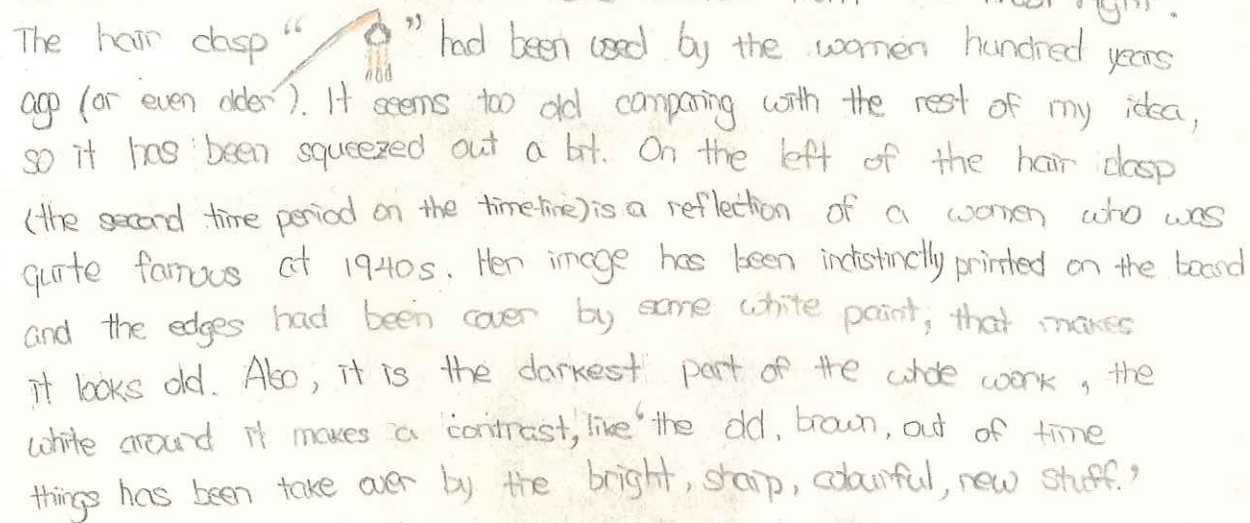 The hair clasp “ ” had been used by the women hundred years
ago (or even older). It seems too old comparing with the rest of my idea,
so it has been squeezed out a bit. On the left of the hair clasp
(the second time period on the timeline) is a reflection of a women who was
quite famous at 1940s. Her image has been indistinctly printed on the board
and the edges had been cover by some white paint, that makes
it looks old. Also, it is the darkest part of the whole work, the
white around it makes a contrast, like ‘the old, brown, out of time
things has been take over by the bright, sharp, colourful, new stuff.’